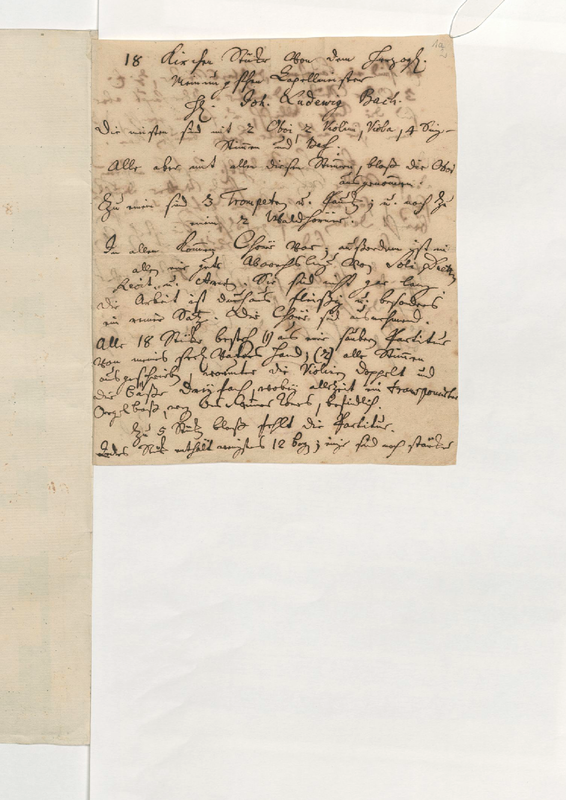 19
18 Kirchen Stücke von dem Herzogl.
Meinungschen Capellmeister
H. Joh. Ludewig Bach.
Die meisten sind mit 2 Oboi, 2 Violin, Viola, 4 Sing-
Stimmen und Baß.
Alle aber mit allen diesen Stimmen, bloß die Oboi
ausgenommen.
Zu einer sind 3 Trompeten u. Pauken; u. noch zu
einer 2 Waldhörner.
In allen kommen Chöre vor; außerdem ist in
allen eine gute Abwechslung von Soli,
Recit. u. Arien. Sie sind nicht gar lang
die Arbeit ist durchaus fleißig u. besonders
ein reiner Satz. Die Chöre sind ausnehmend.
Alle 18 Stücke bestehn (1) aus einer saubern Partitur
von meines seel. Vaters Hand; (2) alle Stimmen
ausgeschrieben, worunter die Violinen doppelt und
die Bäße dreyfach, wobey allezeit ein transponirter
Orgelbaß, befindlich.
Zu 5 Stück bloß fehlt die Partitur.
Jedes Stück enthält wenigstens 12 Bog; einige sind noch stärker